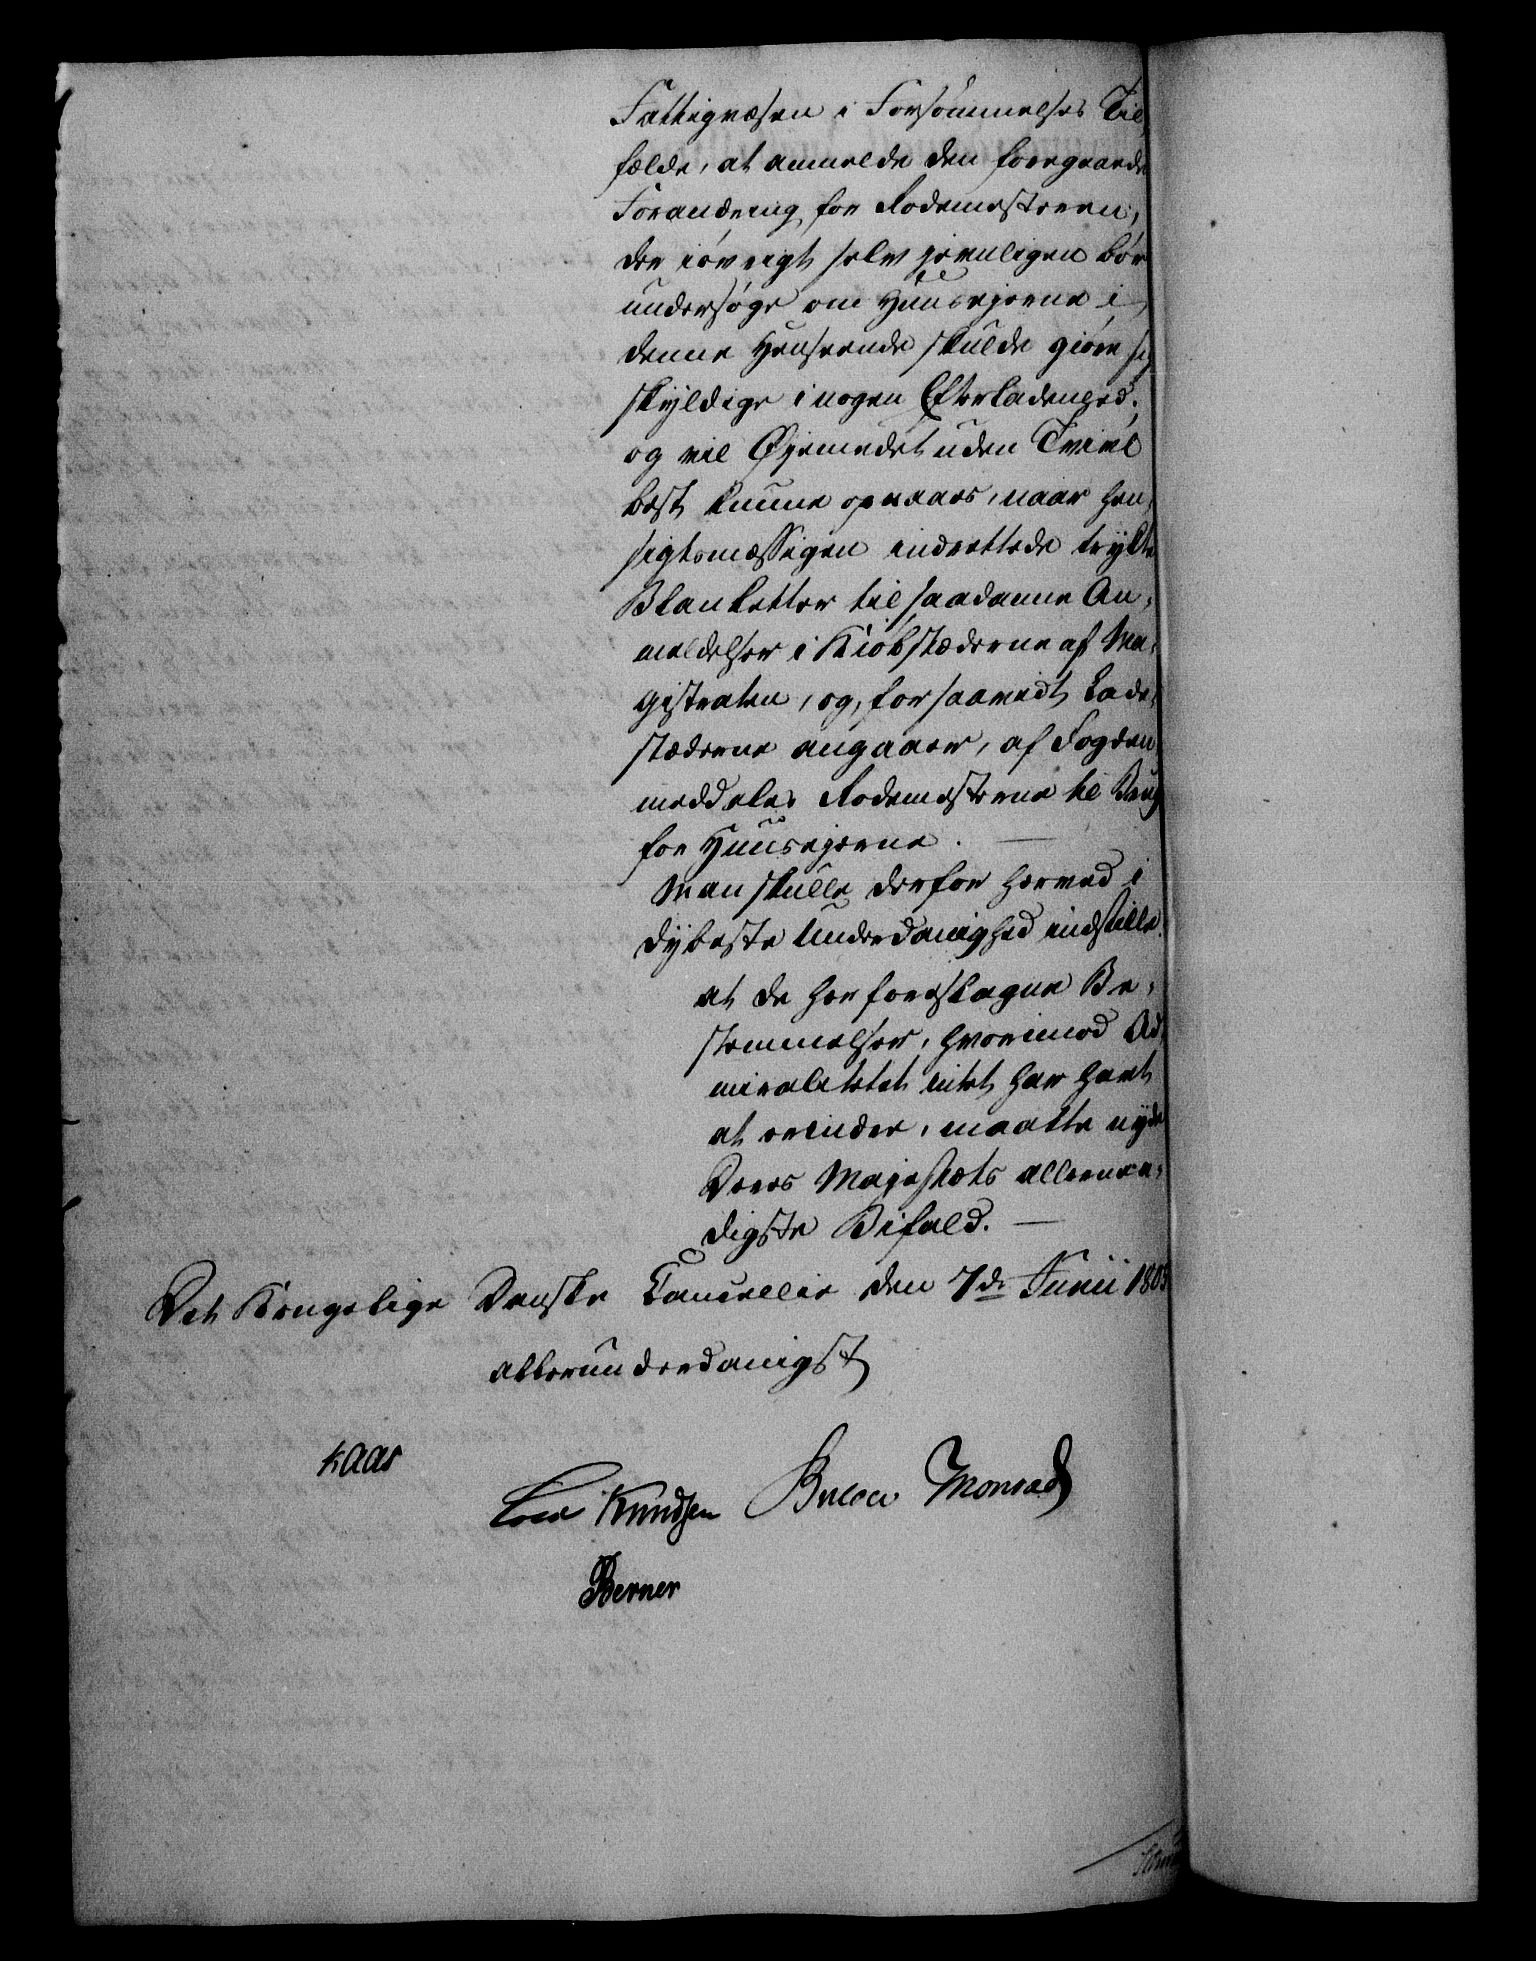 Fattigvæsen i Forsømmelses Til,
fælde, at anmelde den foregaaede
Forandring for Rodemesteren,
der iøvrigt selv jevnligen bør
undersøge om Huusejerne i
denne Henseende skulde giøre sig
skyldige i nogen Efterladenhed;
og vil Øjemedet uden Tvivl
best kunne opnaaes, naar hen,
sigtsmæssigen indrettede trykte
Blanketter til saadanne An,
meldelser i Kiøbstæderne af Ma,
gistraten, og, forsaavidt Lade,
stæderne angaaer, af Fogden
meddeles Rodemesterne til Brug
for Huusejerne. —
Man skulle derfor herved i
dybeste Underdanighed indstille:
at de her foreslagne Be,
stemmelser, hvorimod Ad,
miralitetet intet har havt
at erindre, maatte nyde
Deres Majestæts allernaa,
digste Bifald. —
Det Kongelige Danske Cancellie den 7de Junii 1803
allerunderdanigst
Kaas
Knudsen Bülow Monrad
Berner